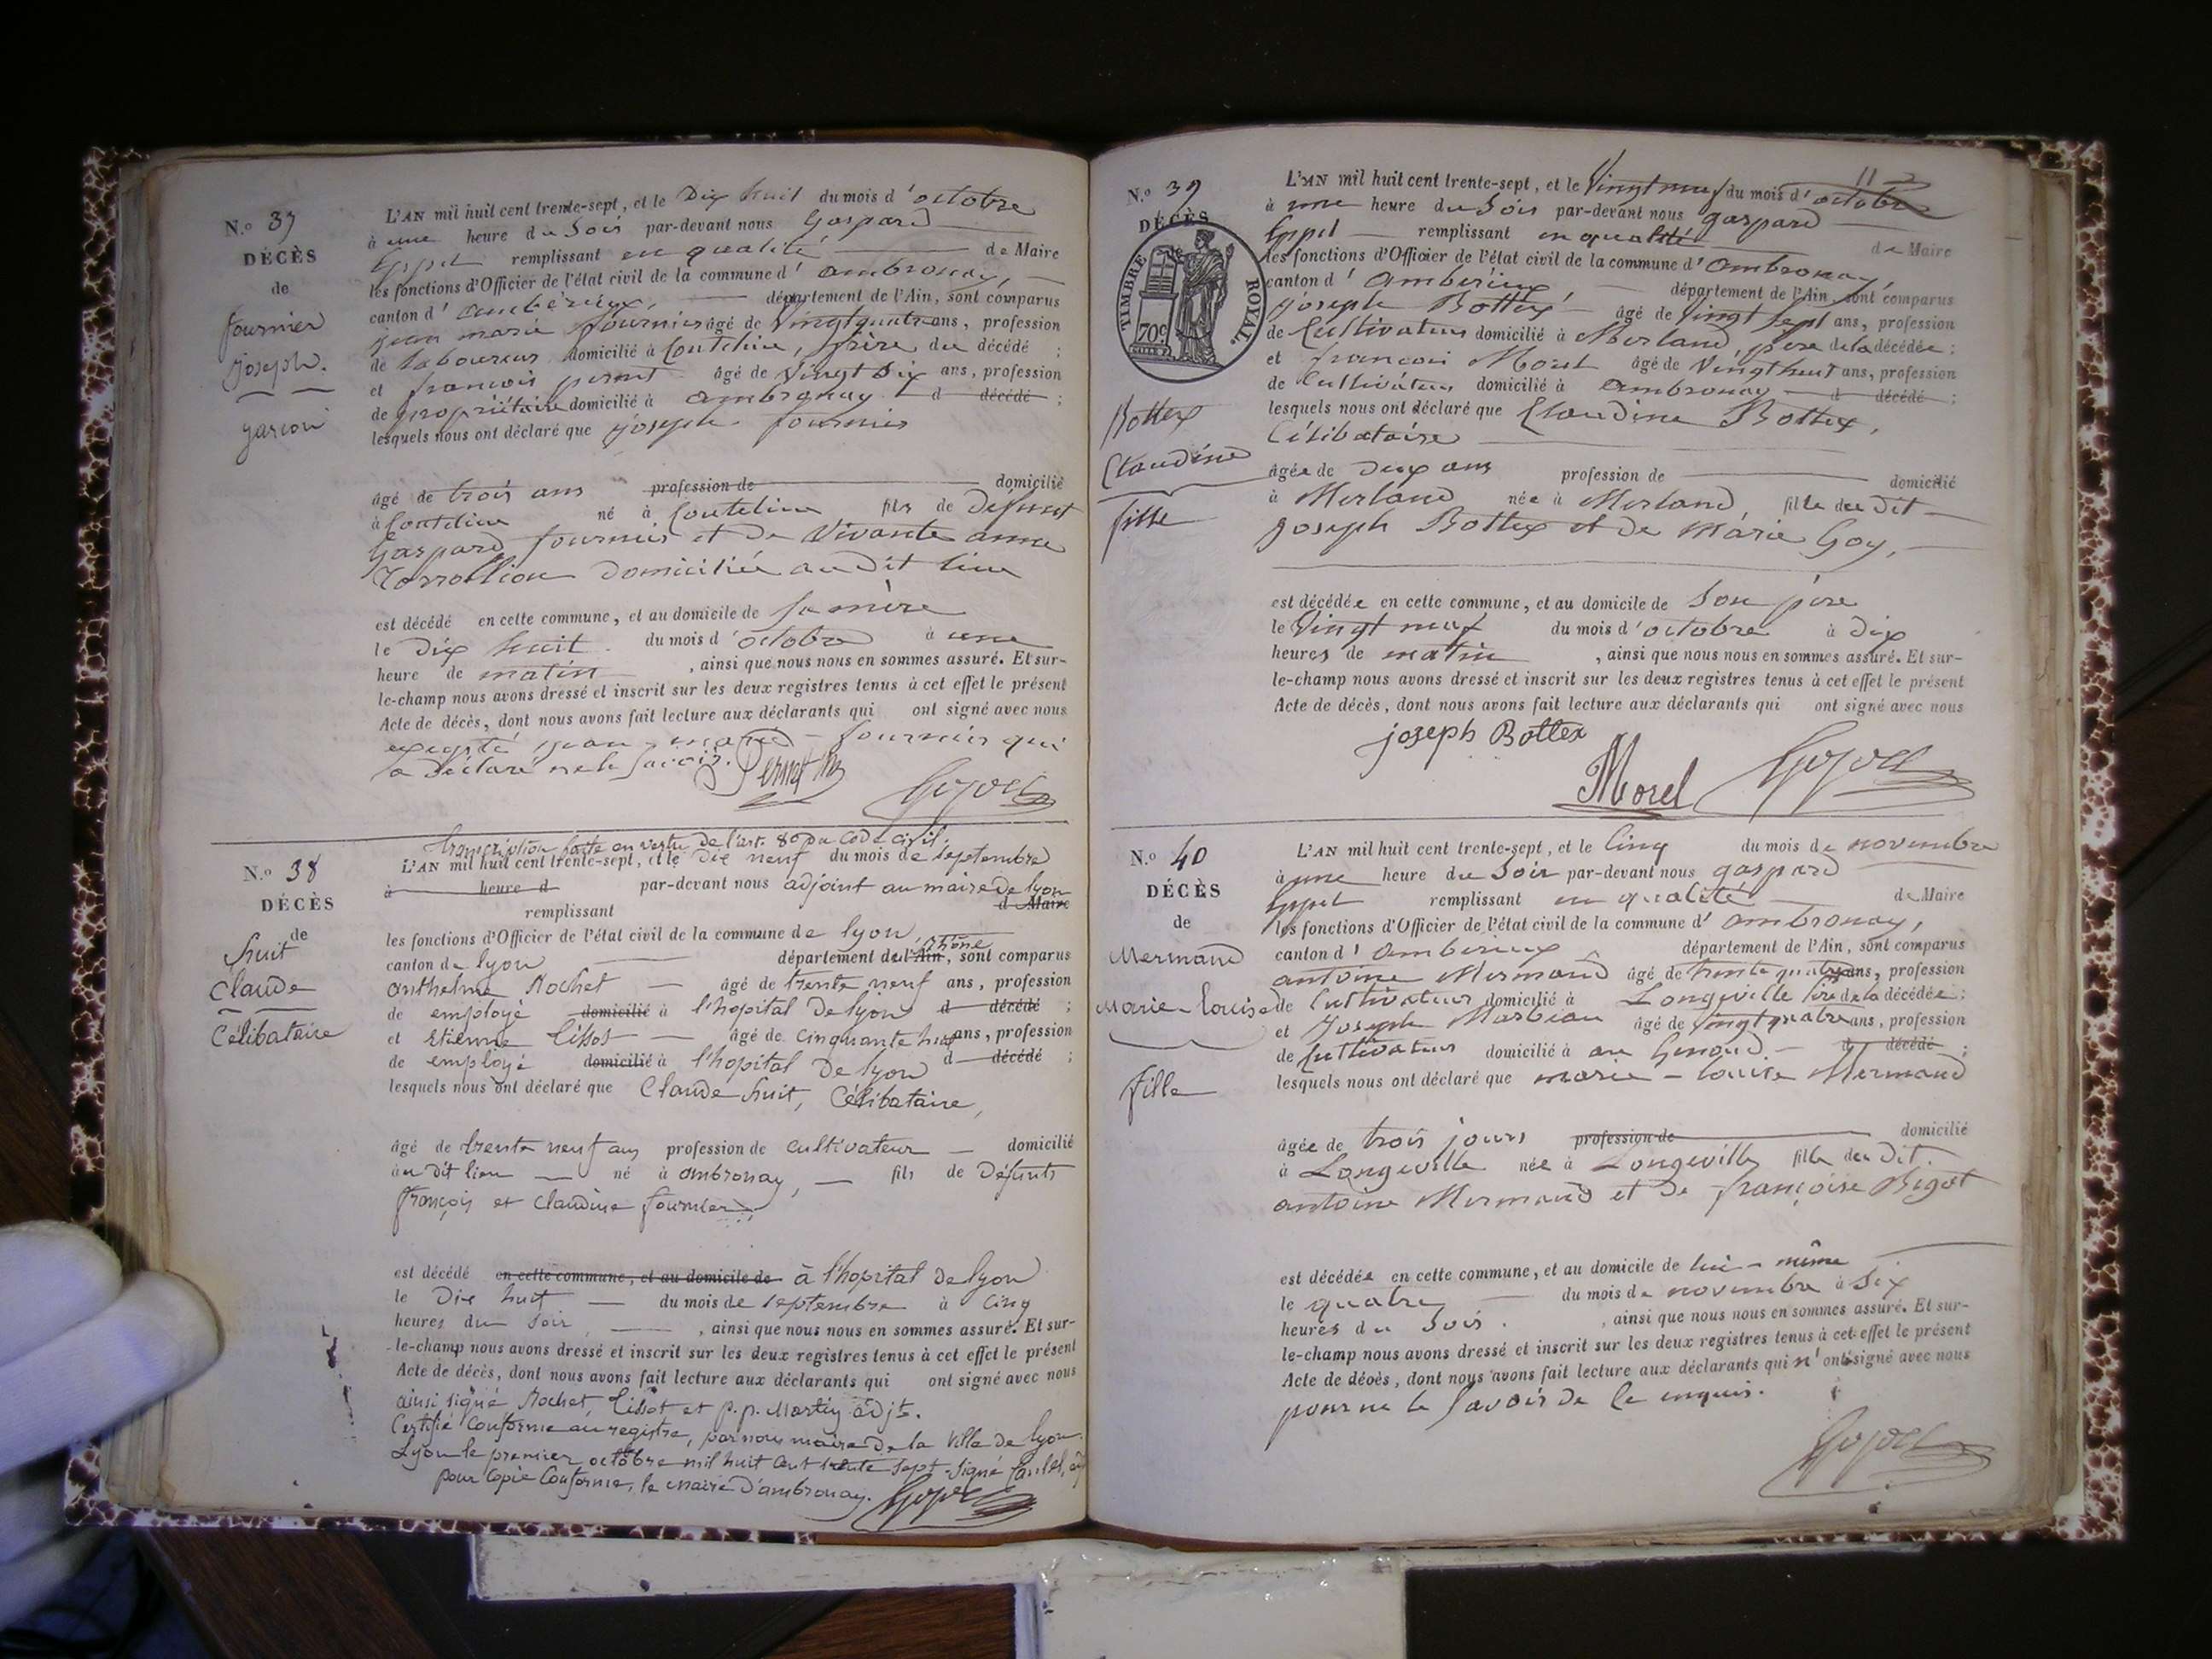 N.o 37
DÉCÈS
de
fournier
joseph.
garcon
L'AN mil huit cent trente-sept, et le Dix huit du mois d'octobre
à une heure du Soir par-devant nous Gaspard
remplissant en qualité de Maire
les fonctions d'Officier de l'état civil de la commune d'ambronay,
canton d'ambérieux, département de l'Ain, sont comparus
jean marie fournier âgé de Vingt quatre ans, profession
de laboureur domicilié à Coutelieu, frère du décédé ;
et francois pernet âgé de Vingt Six ans, profession
de propriétaire domicilié à ambronay d décédé ;
lesquels nous ont déclaré que joseph fournier
âgé de trois ans profession de domicilié
à Coutelieu né à Coutelieu fils de Défunt
Gaspard fournier et De Vivante anne
domiciliée au Dit lieu
est décédé en cette commune, et au domicile de Sa mère
le Dix huit du mois d'octobre à une
heure de matin, ainsi que nous nous en sommes assuré. Et sur-
le-champ nous avons dressé et inscrit sur les deux registres tenus à cet effet le présent
Acte de décès, dont nous avons fait lecture aux déclarants qui ont signé avec nous
excepté jean-marie fournier qui
a Déclaré ne le Savoir. Pernet
N.o 38
DÉCÈS
de
huit
Claude
Célibataire
transcription faite en vertu de l'art. 80 du code civil,
L'AN mil huit cent trente-sept, et le Dix neuf du mois de septembre
à heure d par-devant nous adjoint au maire de lyon
remplissant d Maire
les fonctions d'Officier de l'état civil de la commune de lyon
canton de lyon département de l'Ain, rhône sont comparus
anthelme Rochet âgé de trente neuf ans, profession
de employé domicilié à l'hopital De lyon d décédé ;
et Etienne tissot âgé de cinquante huit ans, profession
de employé domicilié à l'hopital De lyon d décédé ;
lesquels nous ont déclaré que Claude huit, Célibataire,
âgé de trente neuf ans profession de cultivateur domicilié
au dit lieu né à ambronay, fils de Défunts
françois et Claudine fournier
est décédé en cette commune, et au domicile de à l'hopital De lyon
le Dix huit du mois de septembre à Cinq
heures du Soir, ainsi que nous nous en sommes assuré. Et sur-
le-champ nous avons dressé et inscrit sur les deux registres tenus à cet effet le présent
Acte de décès, dont nous avons fait lecture aux déclarants qui ont signé avec nous
ainsi signé Rochet, tissot et p.p. Martin adjt.
Certifié Conforme au registre, par nous maire De la Ville de lyon.
Lyon le premier octobre mil huit cent trente sept. Signé
pour Copie Conforme, le maire D'ambronay.
N.o 39
DÉCÈS
TIMBRE ROYAL.
70c
Bottex
Claudine
fille
L'AN mil huit cent trente-sept, et le Vingt neuf du mois d'octobre
à une heure du Soir par-devant nous gaspard
remplissant en qualité de Maire
les fonctions d'Officier de l'état civil de la commune d'Ambronay,
canton d'Ambérieux département de l'Ain, sont comparus
joseph Bottex âgé de Vingt Sept ans, profession
de Cultivateur domicilié à Merland, père de la décédée ;
et francois Morel âgé de Vingt huit ans, profession
de Cultivateur domicilié à ambronay d décédé ;
lesquels nous ont déclaré que Claudine Bottex,
Célibataire
âgée de Deux ans profession de domicilié
à Merland née à Merland, fille du Dit
joseph Bottex et de Marie Goy,
est décédée en cette commune, et au domicile de Son père
le Vingt neuf du mois d'octobre à Dix
heures de matin, ainsi que nous nous en sommes assuré. Et sur-
le-champ nous avons dressé et inscrit sur les deux registres tenus à cet effet le présent
Acte de décès, dont nous avons fait lecture aux déclarants qui ont signé avec nous
joseph Bottex
Morel
N.o 40
DÉCÈS
de
Mermand
Marie-louise
fille
L'AN mil huit cent trente-sept, et le Cinq du mois de novembre
à une heure du Soir par-devant nous gaspard
remplissant en qualité de Maire
les fonctions d'Officier de l'état civil de la commune d'ambronay,
canton d'Ambérieux département de l'Ain, sont comparus
antoine Mermand âgé de trente quatre ans, profession
de Cultivateur domicilié à Longeville père de la décédée ;
et Joseph Marbiau âgé de Vingt quatre ans, profession
de Cultivateur domicilié à au Genoud d décédé ;
lesquels nous ont déclaré que marie-louise Mermand
âgée de trois jours profession de domicilié
à Longeville née à Longeville fille du Dit
antoine Mermand et de françoise Bigot
est décédée en cette commune, et au domicile de lui-même
le quatre du mois de novembre à Six
heures du Soir, ainsi que nous nous en sommes assuré. Et sur-
le-champ nous avons dressé et inscrit sur les deux registres tenus à cet effet le présent
Acte de décès, dont nous avons fait lecture aux déclarants qui n'ont signé avec nous
pour ne le Savoir De ce enquis.